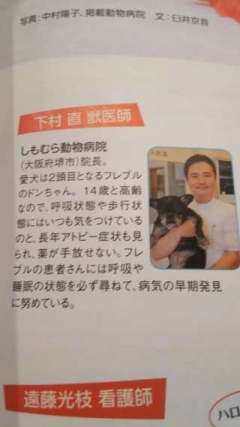 写真:中村陽子、掲載動物病院 文:臼井京音
下村 直 獣医師
しもむら動物病院
(大阪府堺市)院長。
愛犬は2頭目となるフレブル
のドンちゃん。14歳と高齢
なので、呼吸状態や歩行状
態にはいつも気をつけている
のと、長年アトピー症状も見
られ、薬が手放せない。フレ
ブルの患者さんには呼吸や
睡眠の状態を必ず尋ねて、病気の早期発見
に努めている。
遠藤光枝 看護師
ハロ